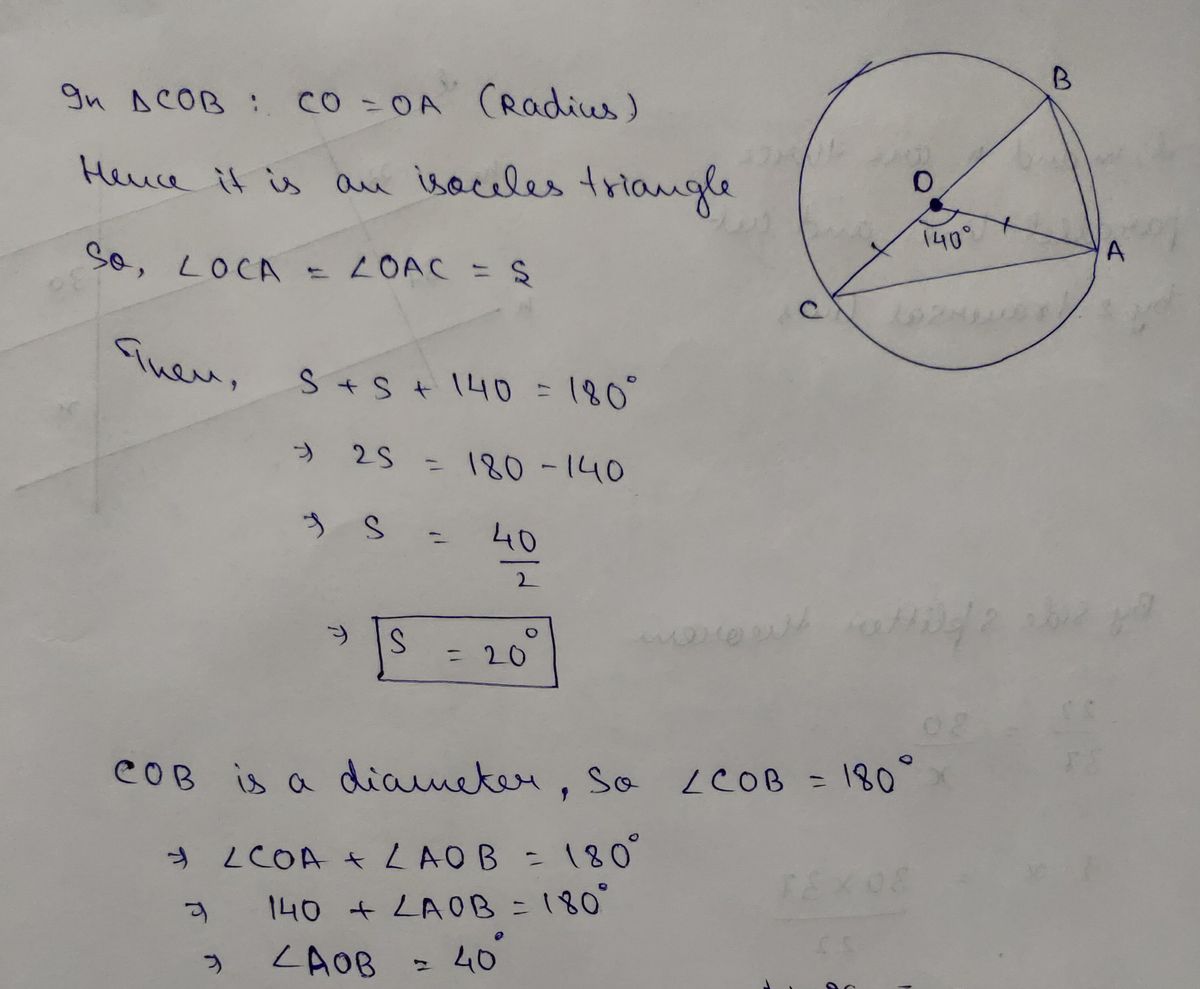 In ΔCOB : CO = OA (Radius)
Hence it is an isoceles triangle
So, ∠OCA = ∠OAC = S
Then, S + S + 140 = 180°
⇒ 2S = 180 - 140
⇒ S = 40/2
⇒ S = 20°
COB is a diameter, So ∠COB = 180°
⇒ ∠COA + ∠AOB = 180°
⇒ 140 + ∠AOB = 180°
⇒ ∠AOB = 40°
B
O
140°
A
C